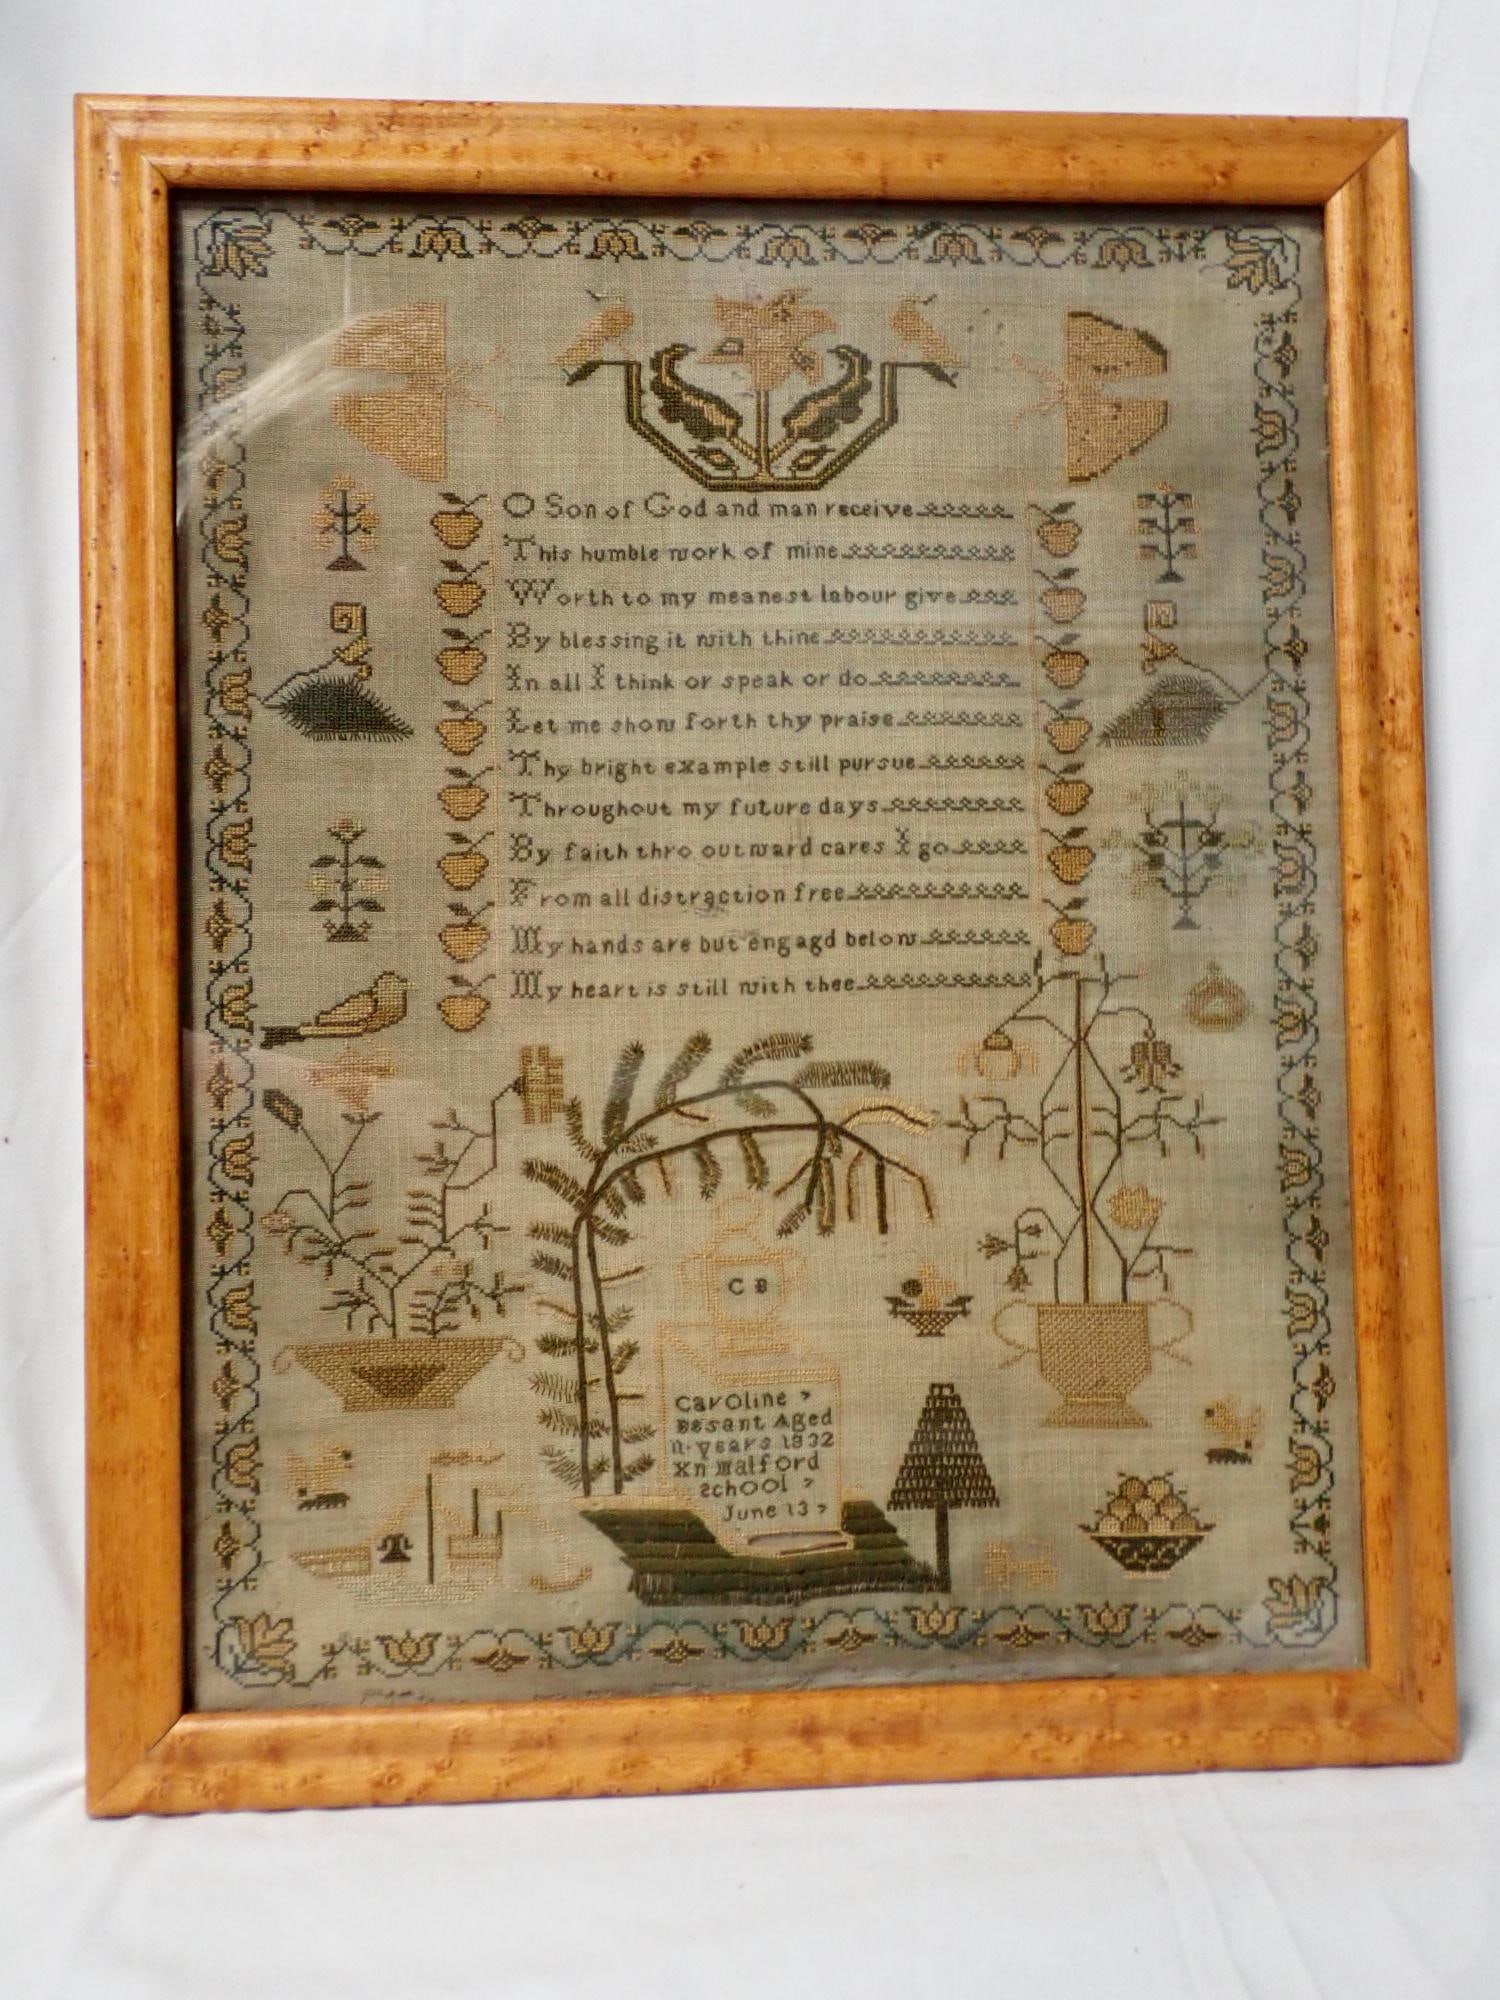 O Son of God and man receive
This humble work of mine
Worth to my meanest labour give
By blessing it with thine
In all I think or speak or do
Let me show forth thy praise
Thy bright example still pursue
Throughout my future days
By faith thro outward cares I go
From all distraction free
My hands are but engagd below
My heart is still with thee
C B
Caroline
Besant Aged
11 years 1832
Xn Malford
School
June 13